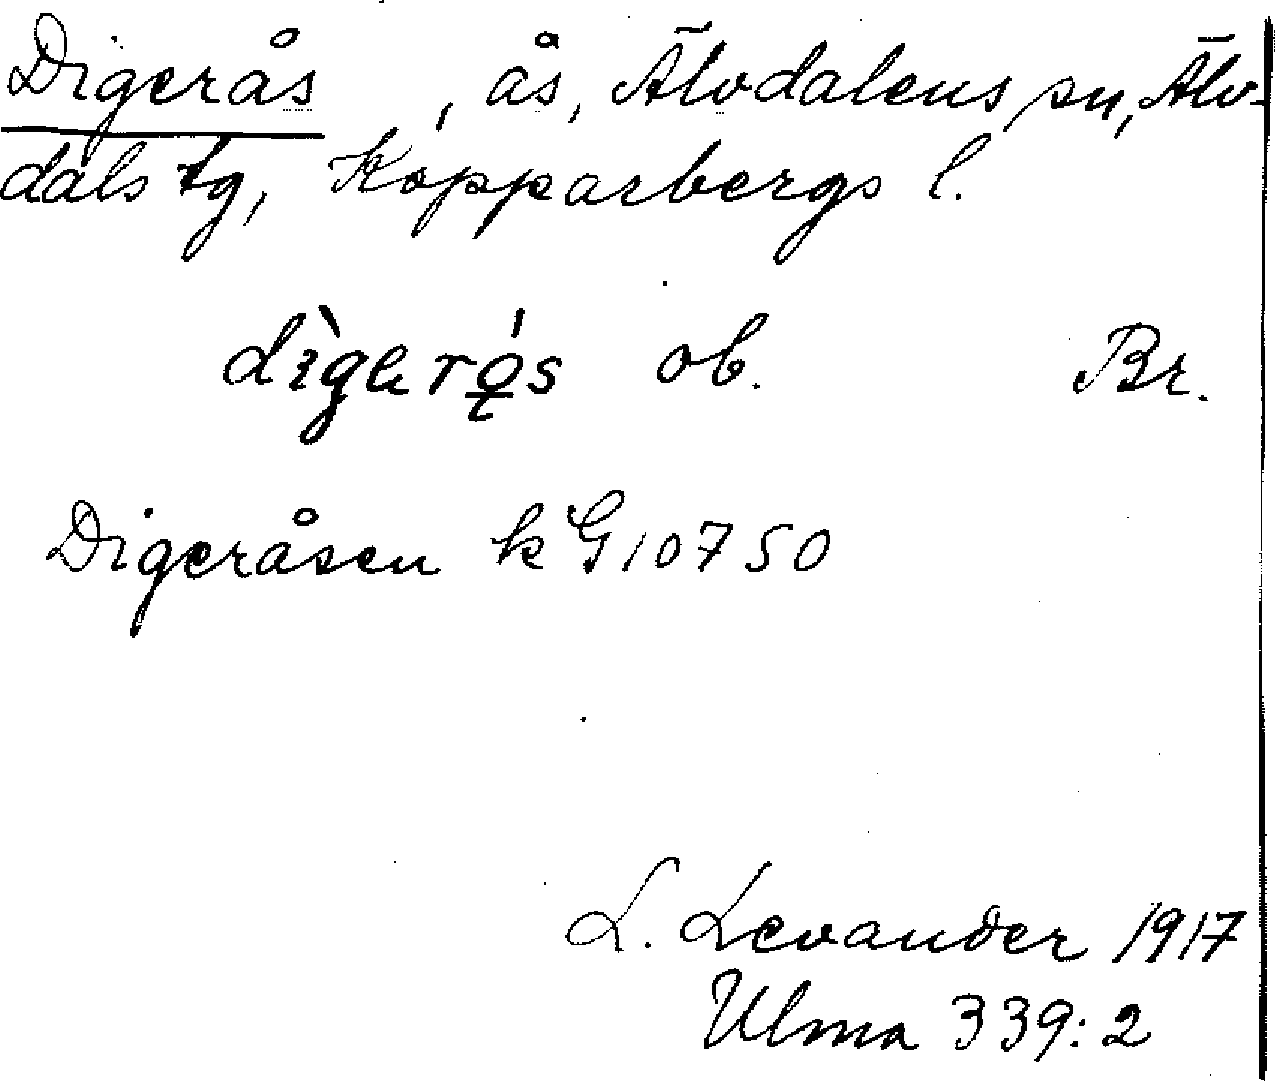 Digerås , ås, Älvdalens sn, Älv-
dals tg, Kopparbergs l.
dìgerǫ́s ob. Br.
Digeråsen k G 10750
L. Levander 1917
Ulma 339:2